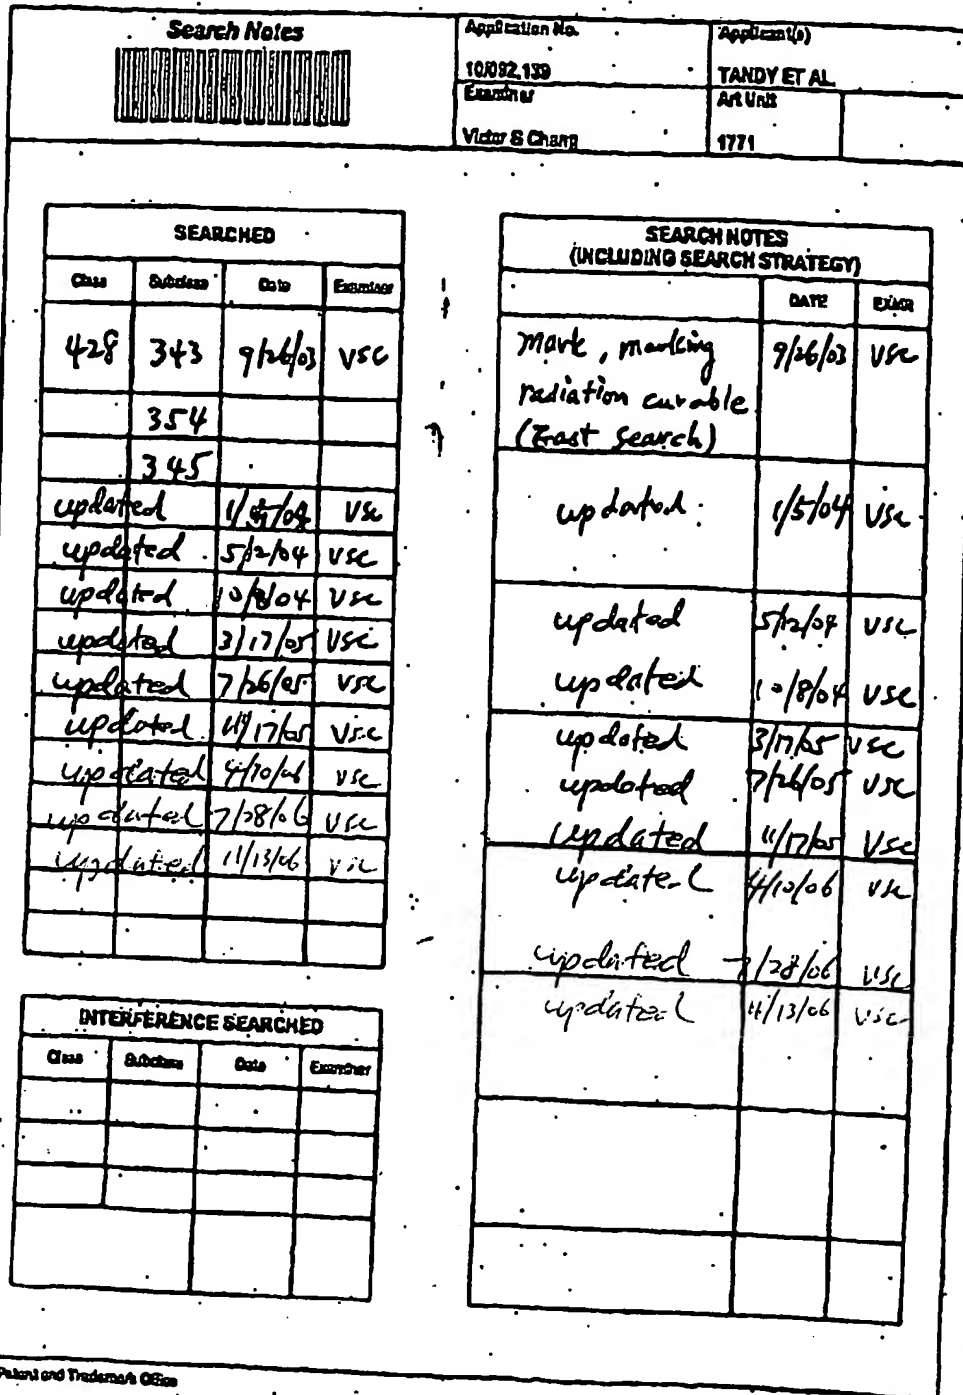 Search Notes
Application No.
10/092,139
Applicant(s)
TANDY ET AL.
Examiner
Victor S Chang
Art Unit
1771
SEARCHED
Class Subclass Date Examiner
428 343 9/26/03 VSC
354
345
updated 1/5/04 VSC
updated 5/12/04 VSC
updated 10/8/04 VSC
updated 3/17/05 VSC
updated 7/26/05 VSC
updated 11/17/05 VSC
updated 4/10/06 VSC
updated 7/28/06 VSC
updated 11/13/06 VSC
INTERFERENCE SEARCHED
Class Subclass Date Examiner
SEARCH NOTES
(INCLUDING SEARCH STRATEGY)
DATE EXMR
mark, marking 9/26/03 VSC
radiation curable
(East search)
updated 1/5/04 VSC
updated 5/12/04 VSC
updated 10/8/04 VSC
updated 3/17/05 VSC
updated 7/26/05 VSC
updated 11/17/05 VSC
updated 4/10/06 VSC
updated 7/28/06 VSC
updated 11/13/06 VSC
Patent and Trademark Office